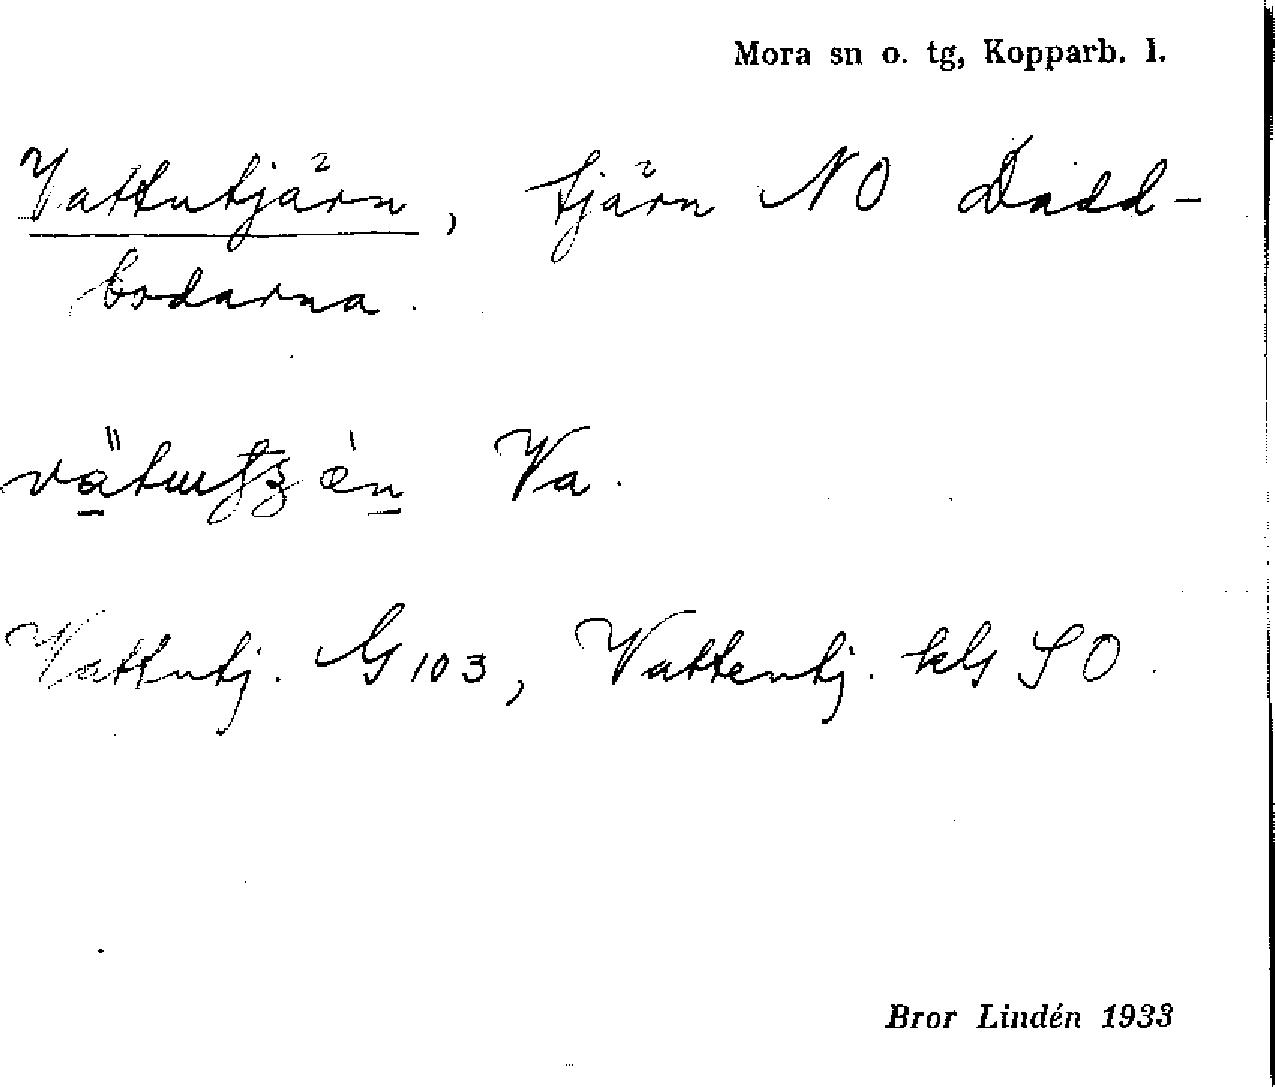 Mora sn o. tg, Kopparb. l.
Vattutjärn, tjärn NO Dådd-
bodarna.
Va.
Vattutj. G 103, Vattentj. kG SO.
Bror Lindén 1933